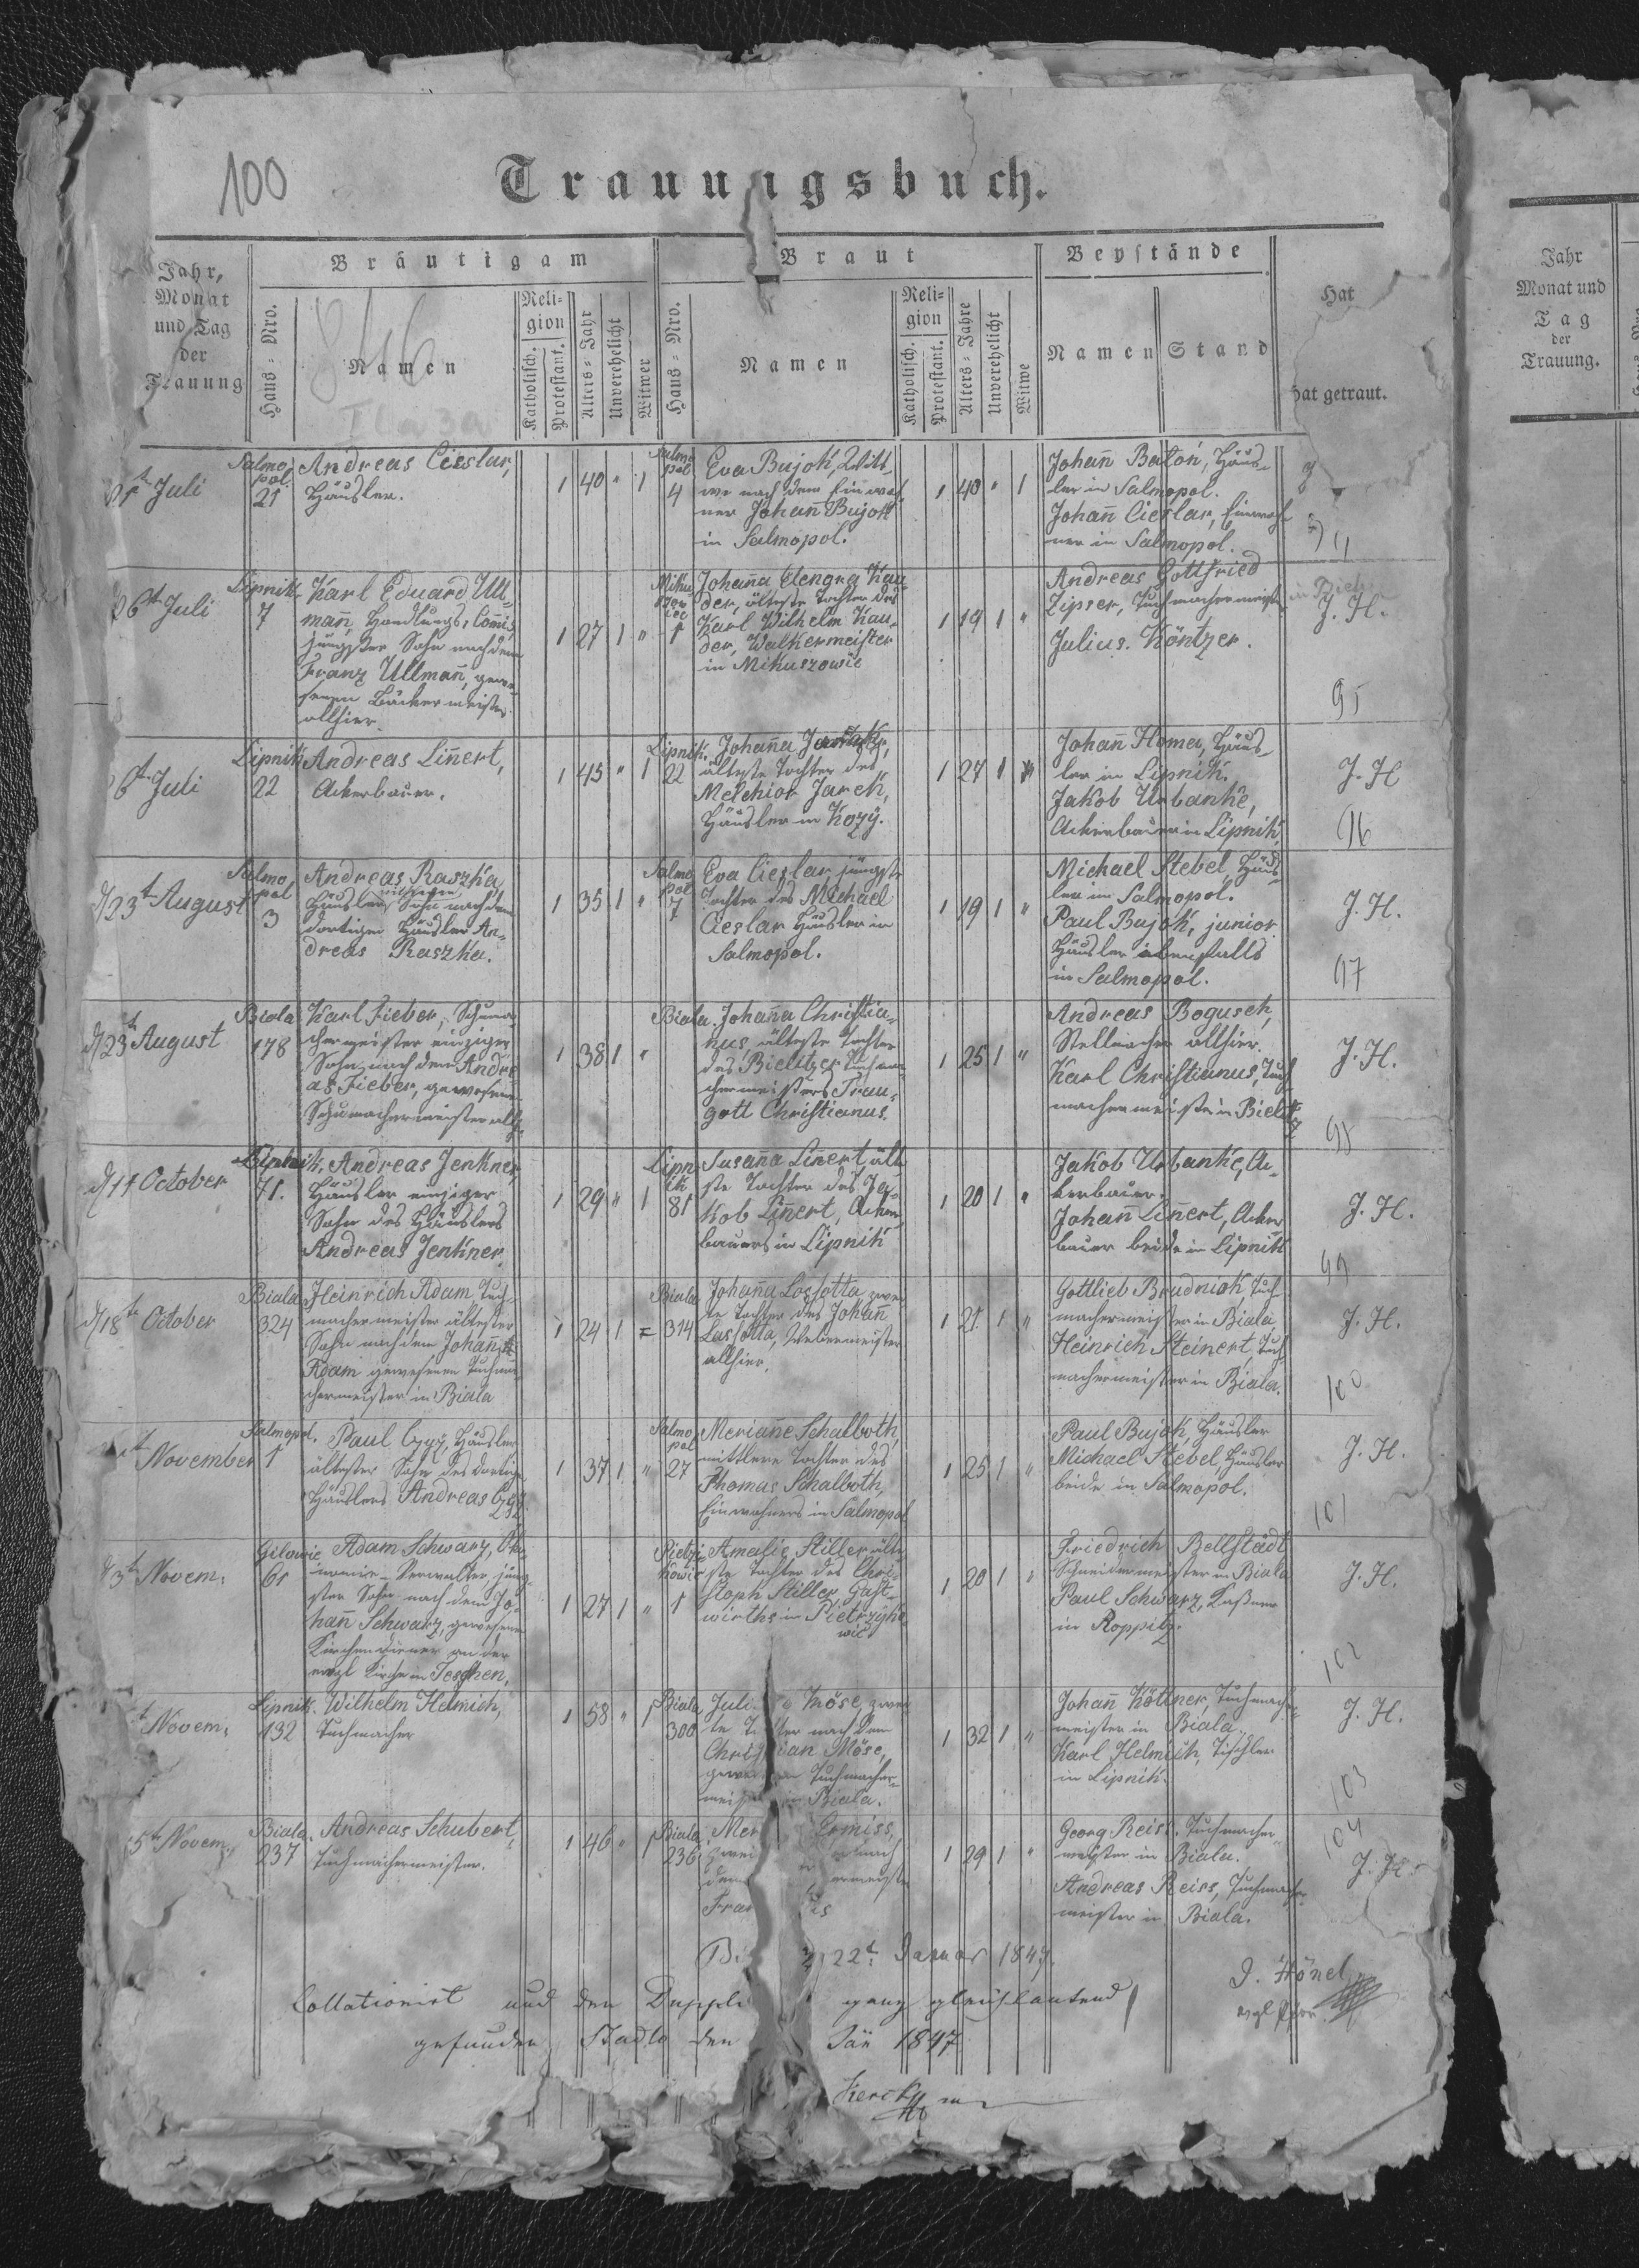 100
Trauungsbuch.
Jahr, Monat und Tag der Trauung
Bräutigam
Haus-Nro.
Namen
1846
Religion
Katholisch.
Protestant.
Alters-Jahr
Unverehelicht
Witwer
Braut
Haus-Nro.
Namen
Religion
Katholisch.
Protestant.
Alters-Jahre
Unverehelicht
Witwe
Beystände
Namen
Stand
Hat
hat getraut.
Juli
Salmo
pol.
21
Andreas Cieslar,
Häusler.
1 40 " 1
Salmo
pol
4
Eva Bujok, Witt
we nach dem Einwoh
ner Johañ Bujok
in Salmopol.
1 40 " 1
Johañ Baton, Häus-
ler in Salmopol.
Johañ Cieslar, Einwoh
ner in Salmopol.
26t Juli
Lipnik
7
Karl Eduard Ull-
mañ, Handlungs-Comis,
jüngster Sohn nach dem
Franz Ullmañ, gewe-
senen Bäckermeister
allhier.
1 27 1 "
Miku
szow
ice
1
Johaña Kau
der, älteste Tochter des
Karl Wilhelm Kau-
der, Walkermeister
in Mikuszowic
1 19 1 "
Andreas Gottfried
Zipser, Tuchmachermeister
in Bielitz
Julius Köntzer.
J. H.
95
6t Juli
Lipnik
22
Andreas Liñert,
Ackerbauer.
1 45 " 1
Lipnik.
22
Johaña
älteste Tochter des
Melchior Jarek,
Häusler in Kozy.
1 27 1
Johañ Homa, Häus-
ler in Lipnik.
Jakob Urbanke,
Ackerbauer in Lipnik
J. H
96
d/23t August
Salmo
pol
3
Andreas Raszka
Häusler Sohn nach dem
dortigen Häusler An-
dreas Raszka.
1 35 1 "
Salmo
pol
7
Eva Cieslar jüngste
Tochter des Michael
Cieslar Häusler in
Salmopol.
1 19 1 "
Michael Stebel, Häus-
ler in Salmopol.
Paul Bujok, junior
Häusler ebenfalls
in Salmopol.
J. H.
97
d/23t August
Biala
178
Karl Fieber, Schuma-
chermeister einziger
Sohn nach dem Andre
as Fieber, gewesenen
Schumachermeister allh.
1 38 1 "
Biala.
Johaña Christia-
nus, älteste Tochter
des Bielitzer Tuchma-
chermeisters Trau-
gott Christianus.
1 25 1 "
Andreas Bogusch,
Stellmacher allhier.
Karl Christianus, Tuch
machermeister in Bielitz
J. H.
98
d/11 October
Lipnik,
71.
Andreas Jenkner,
Häusler einziger
Sohn des Häuslers
Andreas Jenkner.
1 29 " 1
Lipn
ik
81
Susaña Liñert älte
ste Tochter des Ja-
kob Liñert, Acker-
bauers in Lipnik
1 20 1 "
Jakob Urbanke, Ac-
kerbauer.
Johañ Liñert, Acker
bauer beide in Lipnik
J. H.
99
d/18te October
Biala
324
Heinrich Adam Tuch-
machermeister ältester
Sohn nach dem Johañ
Adam gewesenen Tuchma-
chermeister in Biala
1 24 1 =
Biala
314
Johaña Lossotta zwei
te Tochter des Johañ
Lassotta, Webermeister
allhier.
1 21 1 "
Gottlieb Brudniok Tuch
machermeister in Biala
Heinrich Steinert, Tuch-
machermeister in Biala.
J. H.
100
November
Salmopol.
1
Paul Czyz, Häusler
ältester Sohn des dortigen
Häuslers Andreas Czyz.
1 37 1 "
Salmo
pol
27
Meriañe Schalboth,
mittlere Tochter des
Thomas Schalboth,
Einwohners in Salmopol
1 25 1 "
Paul Bujok, Häusler
Michael Stebel, Häusler
beide in Salmopol.
J. H.
101
3t Novem.
Gilowic
61
Adam Schwarz,
Verwalter, jüng-
ster Sohn nach dem Jo-
hañ Schwarz, gewesenen
Kirchendiener an der
evgl Kirche in Teschen.
1 27 1 "
Pietrzy
kowic
1
Amalie Stiller älte-
ste Tochter des Chri-
stoph Stiller, Gast-
wirths in Pietrzyko
wic
1 20 1 "
Friedrich Bellstädt
Schneidermeister in Biala
Paul Schwarz,
in Roppitz.
J. H.
102
t Novem.
Lipnik.
132
Wilhelm Helmich,
Tuchmacher
1 58 " 1
Biala
300
Juli Möse, zwei
te T ter nach dem
Chris ian Möse,
gewe Tuchmacher-
meis in Biala.
1 32 1 "
Johañ Köttner, Tuchmacher-
meister in Biala.
Karl Helmich, Tischler
in Lipnik.
J. H.
103
5te Novem.
Biala.
237
Andreas Schubert,
Tuchmachermeister.
1 46 " 1
Biala
236
Mer
zwei nach
dem ermeister
Fran
1 29 1 "
Georg Reiss, Tuchmacher-
meister in Biala.
Andreas Reiss, Tuchmacher-
meister in Biala.
104
J. H.
Bi 22t Januar 1847.
J. Hönel
evgl Pfarr.
Collationirt und den Duppli ganz gleichlautend
gefunden Stadlo den Jän 1847
Jahr
Monat und
Tag
der
Trauung.